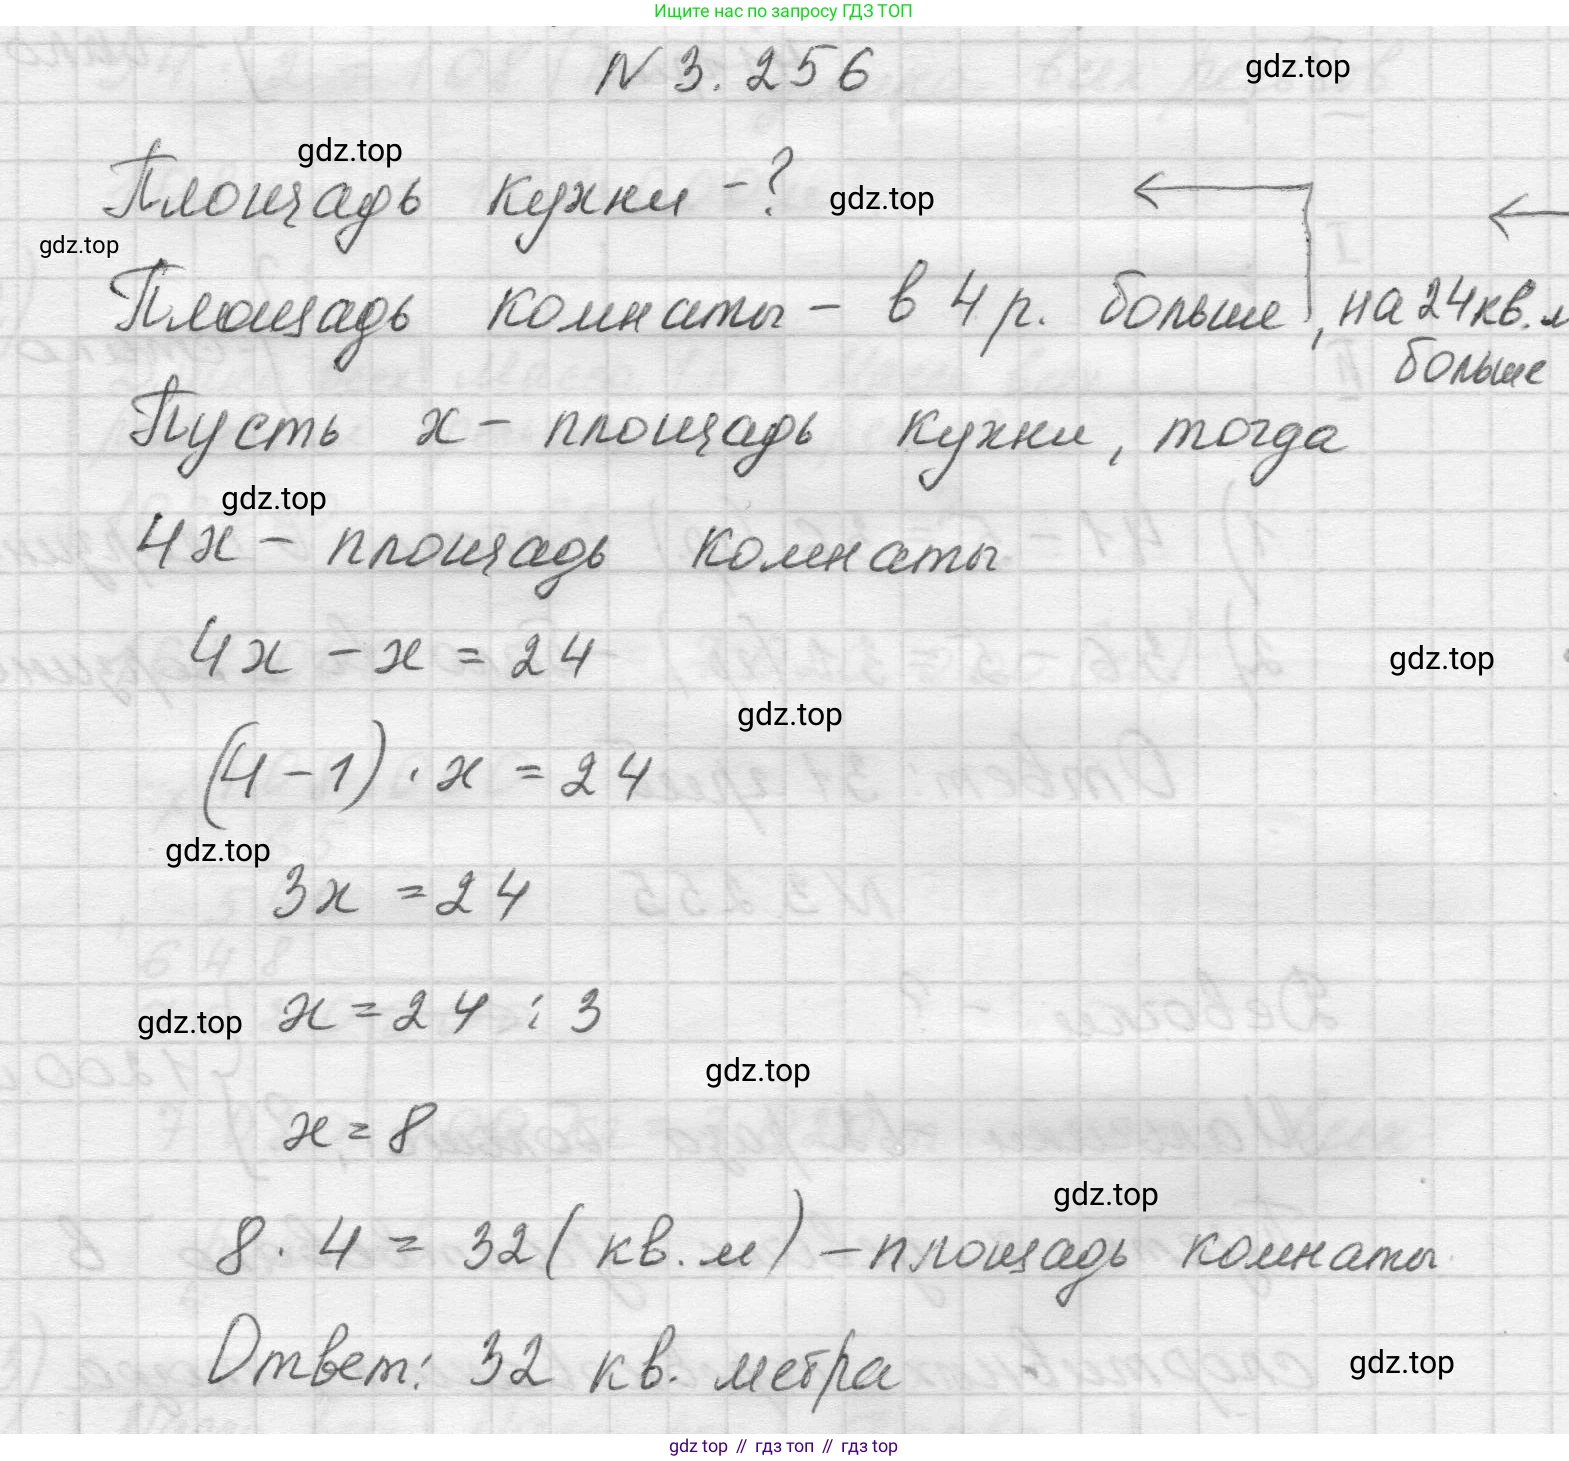 Ищите нас по запросу ГДЗ ТОП
N 3.256
gdz.top
gdz.top
Площадь кухни - ?
gdz.top
gdz.top
Площадь комнаты - в 4 р. больше, на 24 кв. м
больше
Пусть х - площадь кухни, тогда
gdz.top
4х - площадь комнаты
4х - х = 24
gdz.top
gdz.top
(4 - 1) · х = 24
gdz.top
3х = 24
х = 24 : 3
gdz.top
gdz.top
х = 8
gdz.top
8 · 4 = 32 (кв. м) - площадь комнаты
Ответ: 32 кв. метра
gdz.top
gdz top // гдз топ // гдз top